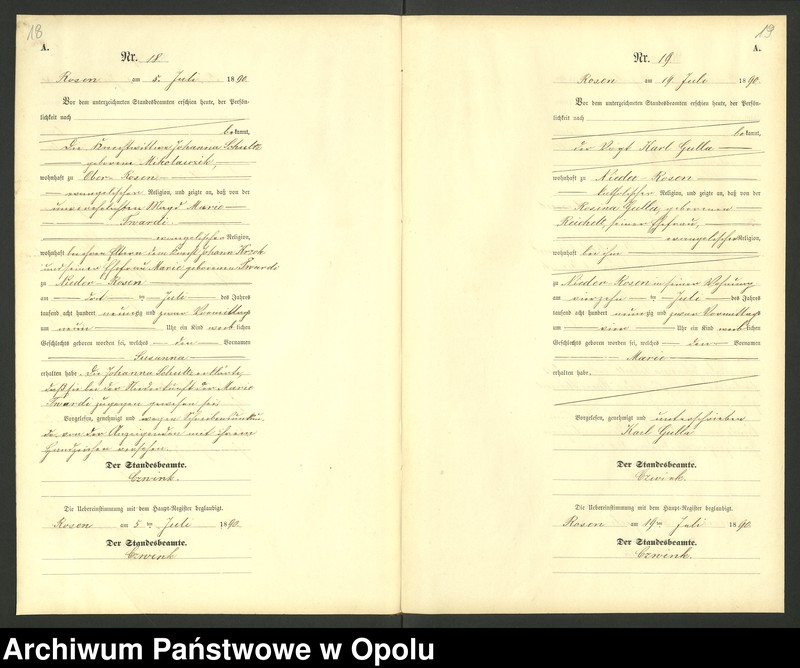 18
A.
Nr. 18
Rosen am 5. Juli 1890.
Vor dem unterzeichneten Standesbeamten erschien heute, der Persön-
lichkeit nach
bekannt,
Die Knechtwittwe Johanna Schultz
geborene Mikolawzik,
wohnhaft zu Ober-Rosen
evangelischer Religion, und zeigte an, daß von der
unverehelichten Magd Marie
Twardi
evangelischer Religion,
wohnhaft bei ihren Eltern dem Knecht Johann Krzok
und seiner Ehefrau Marie geborenen Twardi
zu Nieder-Rosen
am drit ten Juli des Jahres
tausend acht hundert neunzig und zwar Vormittag
um neun Uhr ein Kind weiblichen
Geschlechts geboren worden sei, welches den Vornamen
Susanna
erhalten habe. Die Johanna Schultz erklärte,
daß sie bei der Niederkunft der Marie
Twardi zugegen gewesen sei.
Vorgelesen, genehmigt und wegen Schreibensunkun-
de, von der Anzeigenden mit ihrem
Handzeichen versehen.
Der Standesbeamte.
Czwink.
Die Uebereinstimmung mit dem Haupt-Register beglaubigt.
Rosen am 5 ten Juli 1890.
Der Standesbeamte.
Czwink
19
A.
Nr. 19
Rosen am 19. Juli 1890.
Vor dem unterzeichneten Standesbeamten erschien heute, der Persön-
lichkeit nach
bekannt,
der Vogt Karl Gulla
wohnhaft zu Nieder-Rosen
katholischer Religion, und zeigte an, daß von der
Rosina Gulla, geborenen
Reichelt, seiner Ehefrau,
evangelischer Religion,
wohnhaft bei ihm
zu Nieder-Rosen in seiner Wohnung
am vierzehn ten Juli des Jahres
tausend acht hundert neunzig und zwar Vormittags
um vier Uhr ein Kind weiblichen
Geschlechts geboren worden sei, welches den Vornamen
Marie
erhalten habe.
Vorgelesen, genehmigt und unterschrieben
Karl Gulla
Der Standesbeamte.
Czwink.
Die Uebereinstimmung mit dem Haupt-Register beglaubigt.
Rosen am 19 ten Juli 1890.
Der Standesbeamte.
Czwink.
Archiwum Państwowe w Opolu